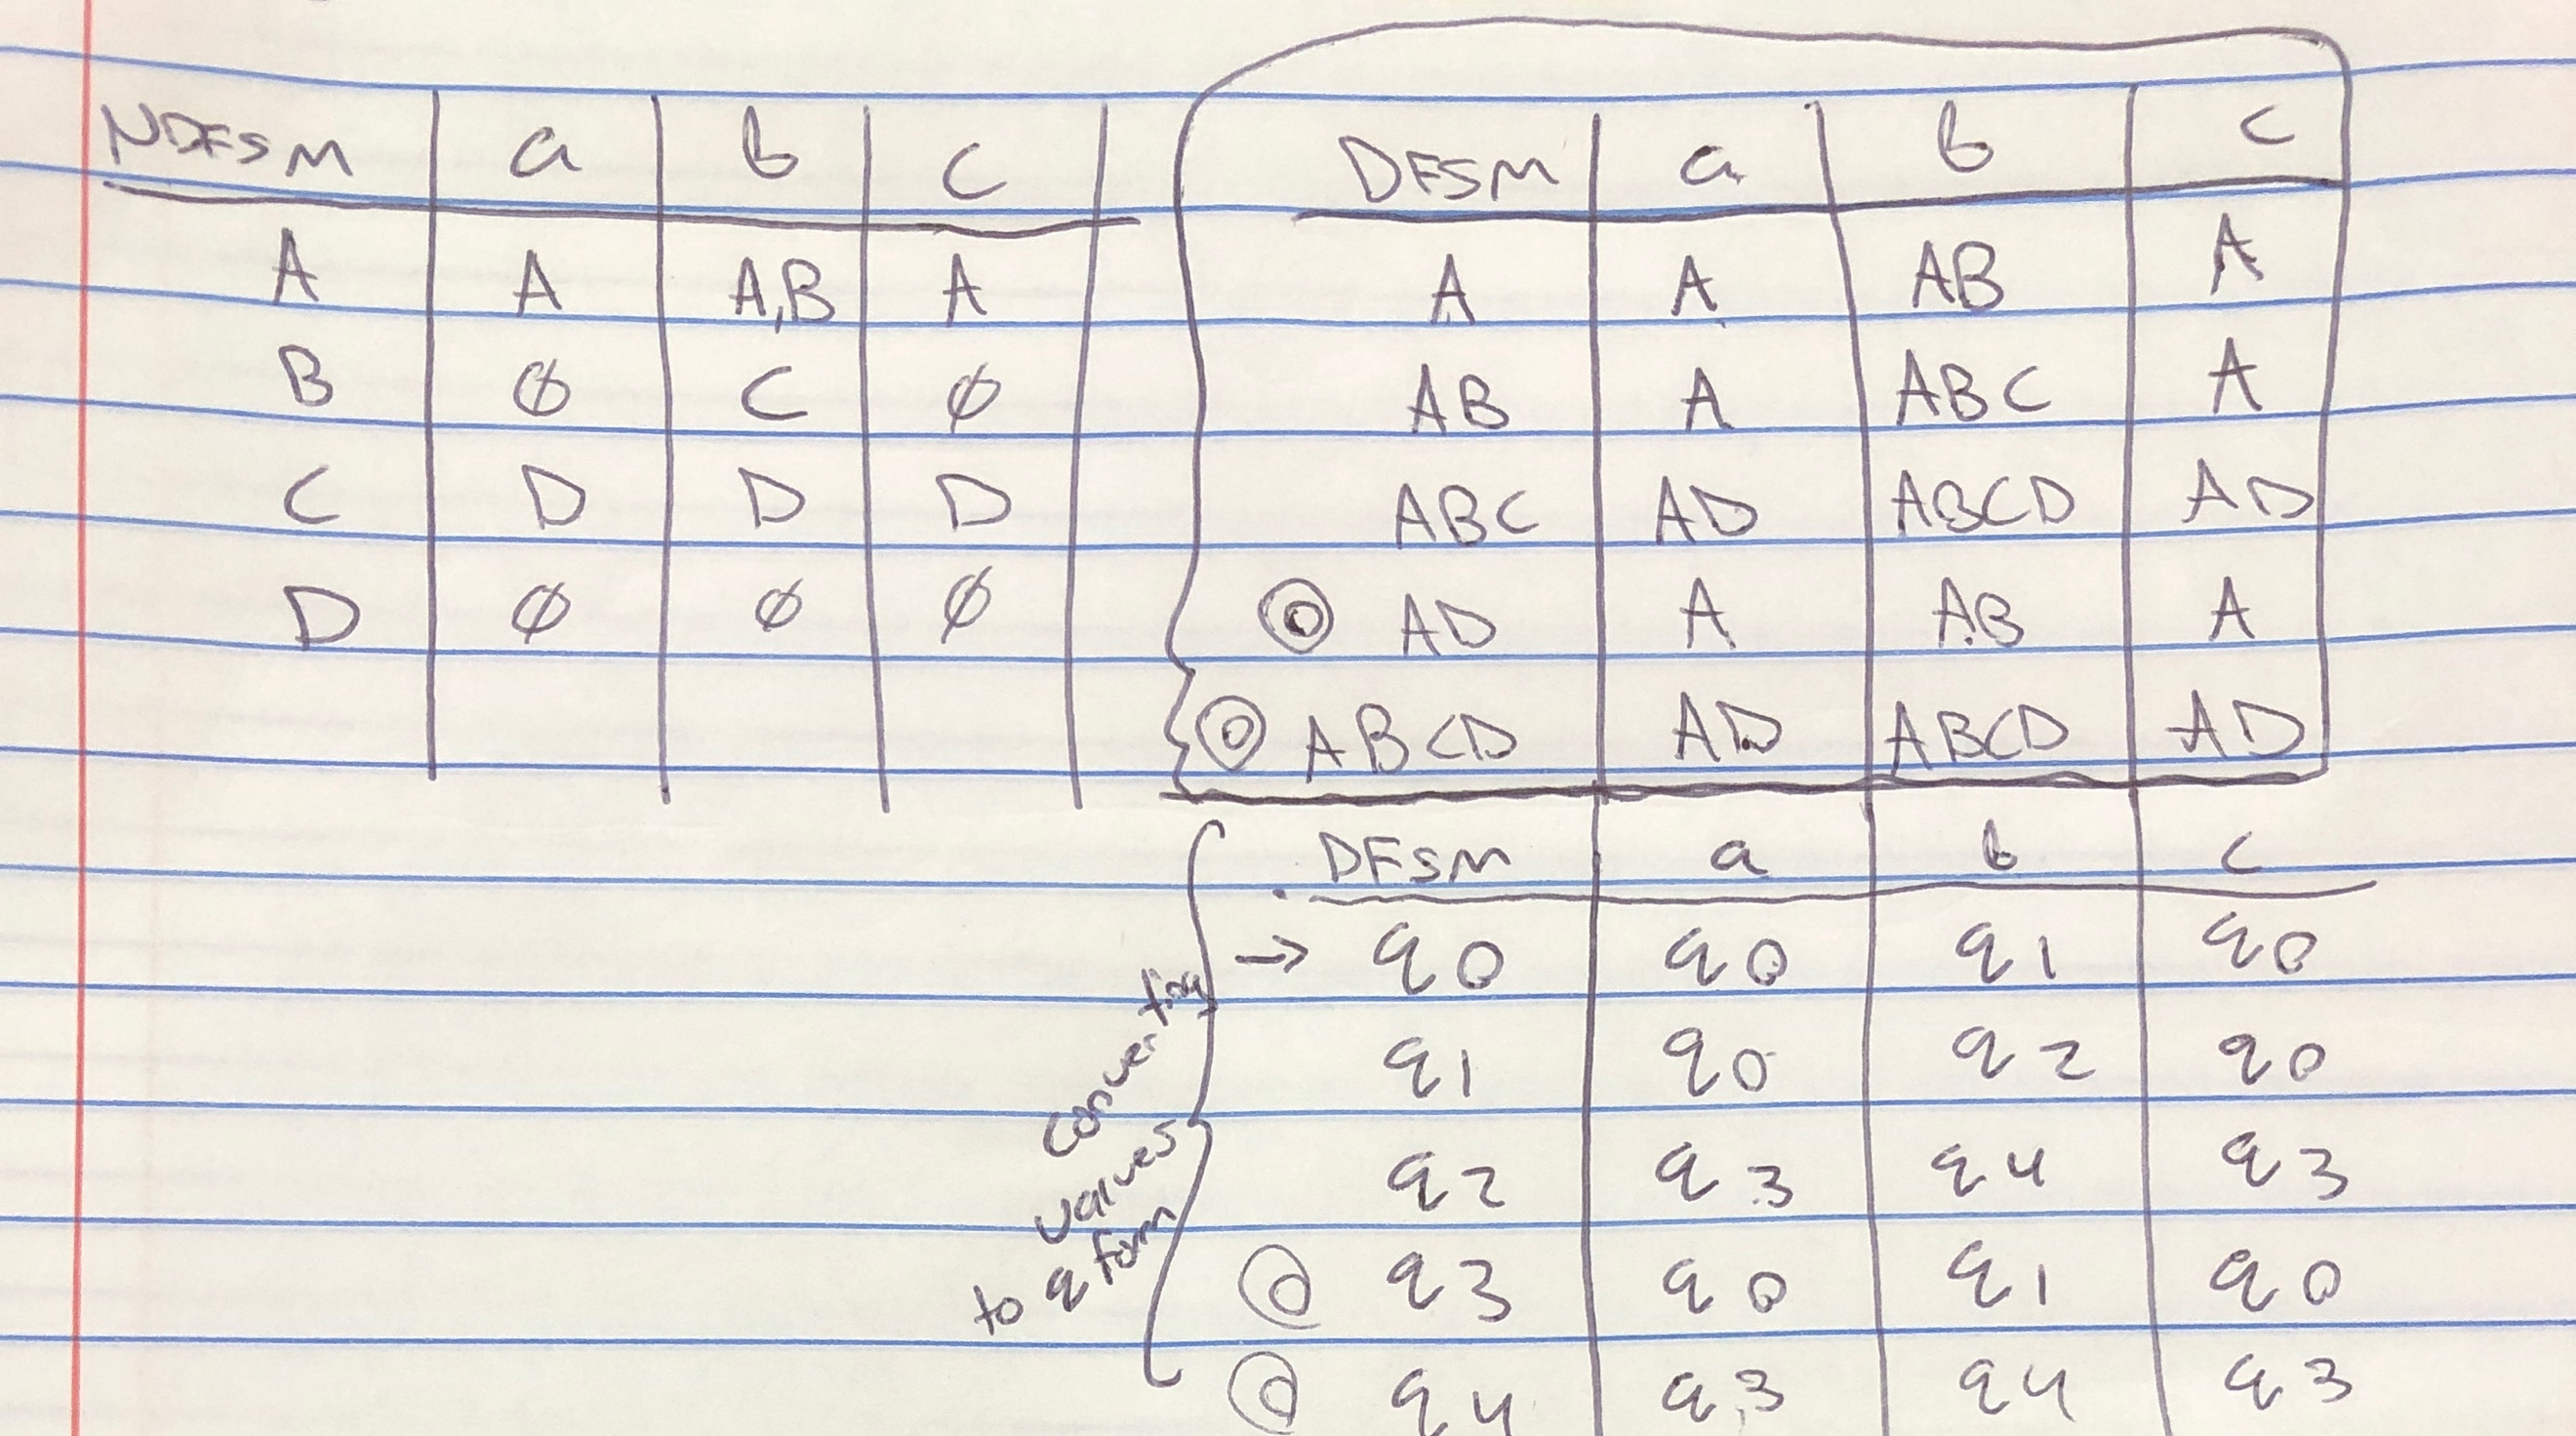 NDFSM a b c
A A A,B A
B Ø C Ø
C D D D
D Ø Ø Ø
DFSM a b c
A A AB A
AB A ABC A
ABC AD ABCD AD
AD A AB A
ABCD AD ABCD AD
converting
values
to q form
DFSM a b c
→ q0 q0 q1 q0
q1 q0 q2 q0
q2 q3 q4 q3
q3 q0 q1 q0
q4 q3 q4 q3